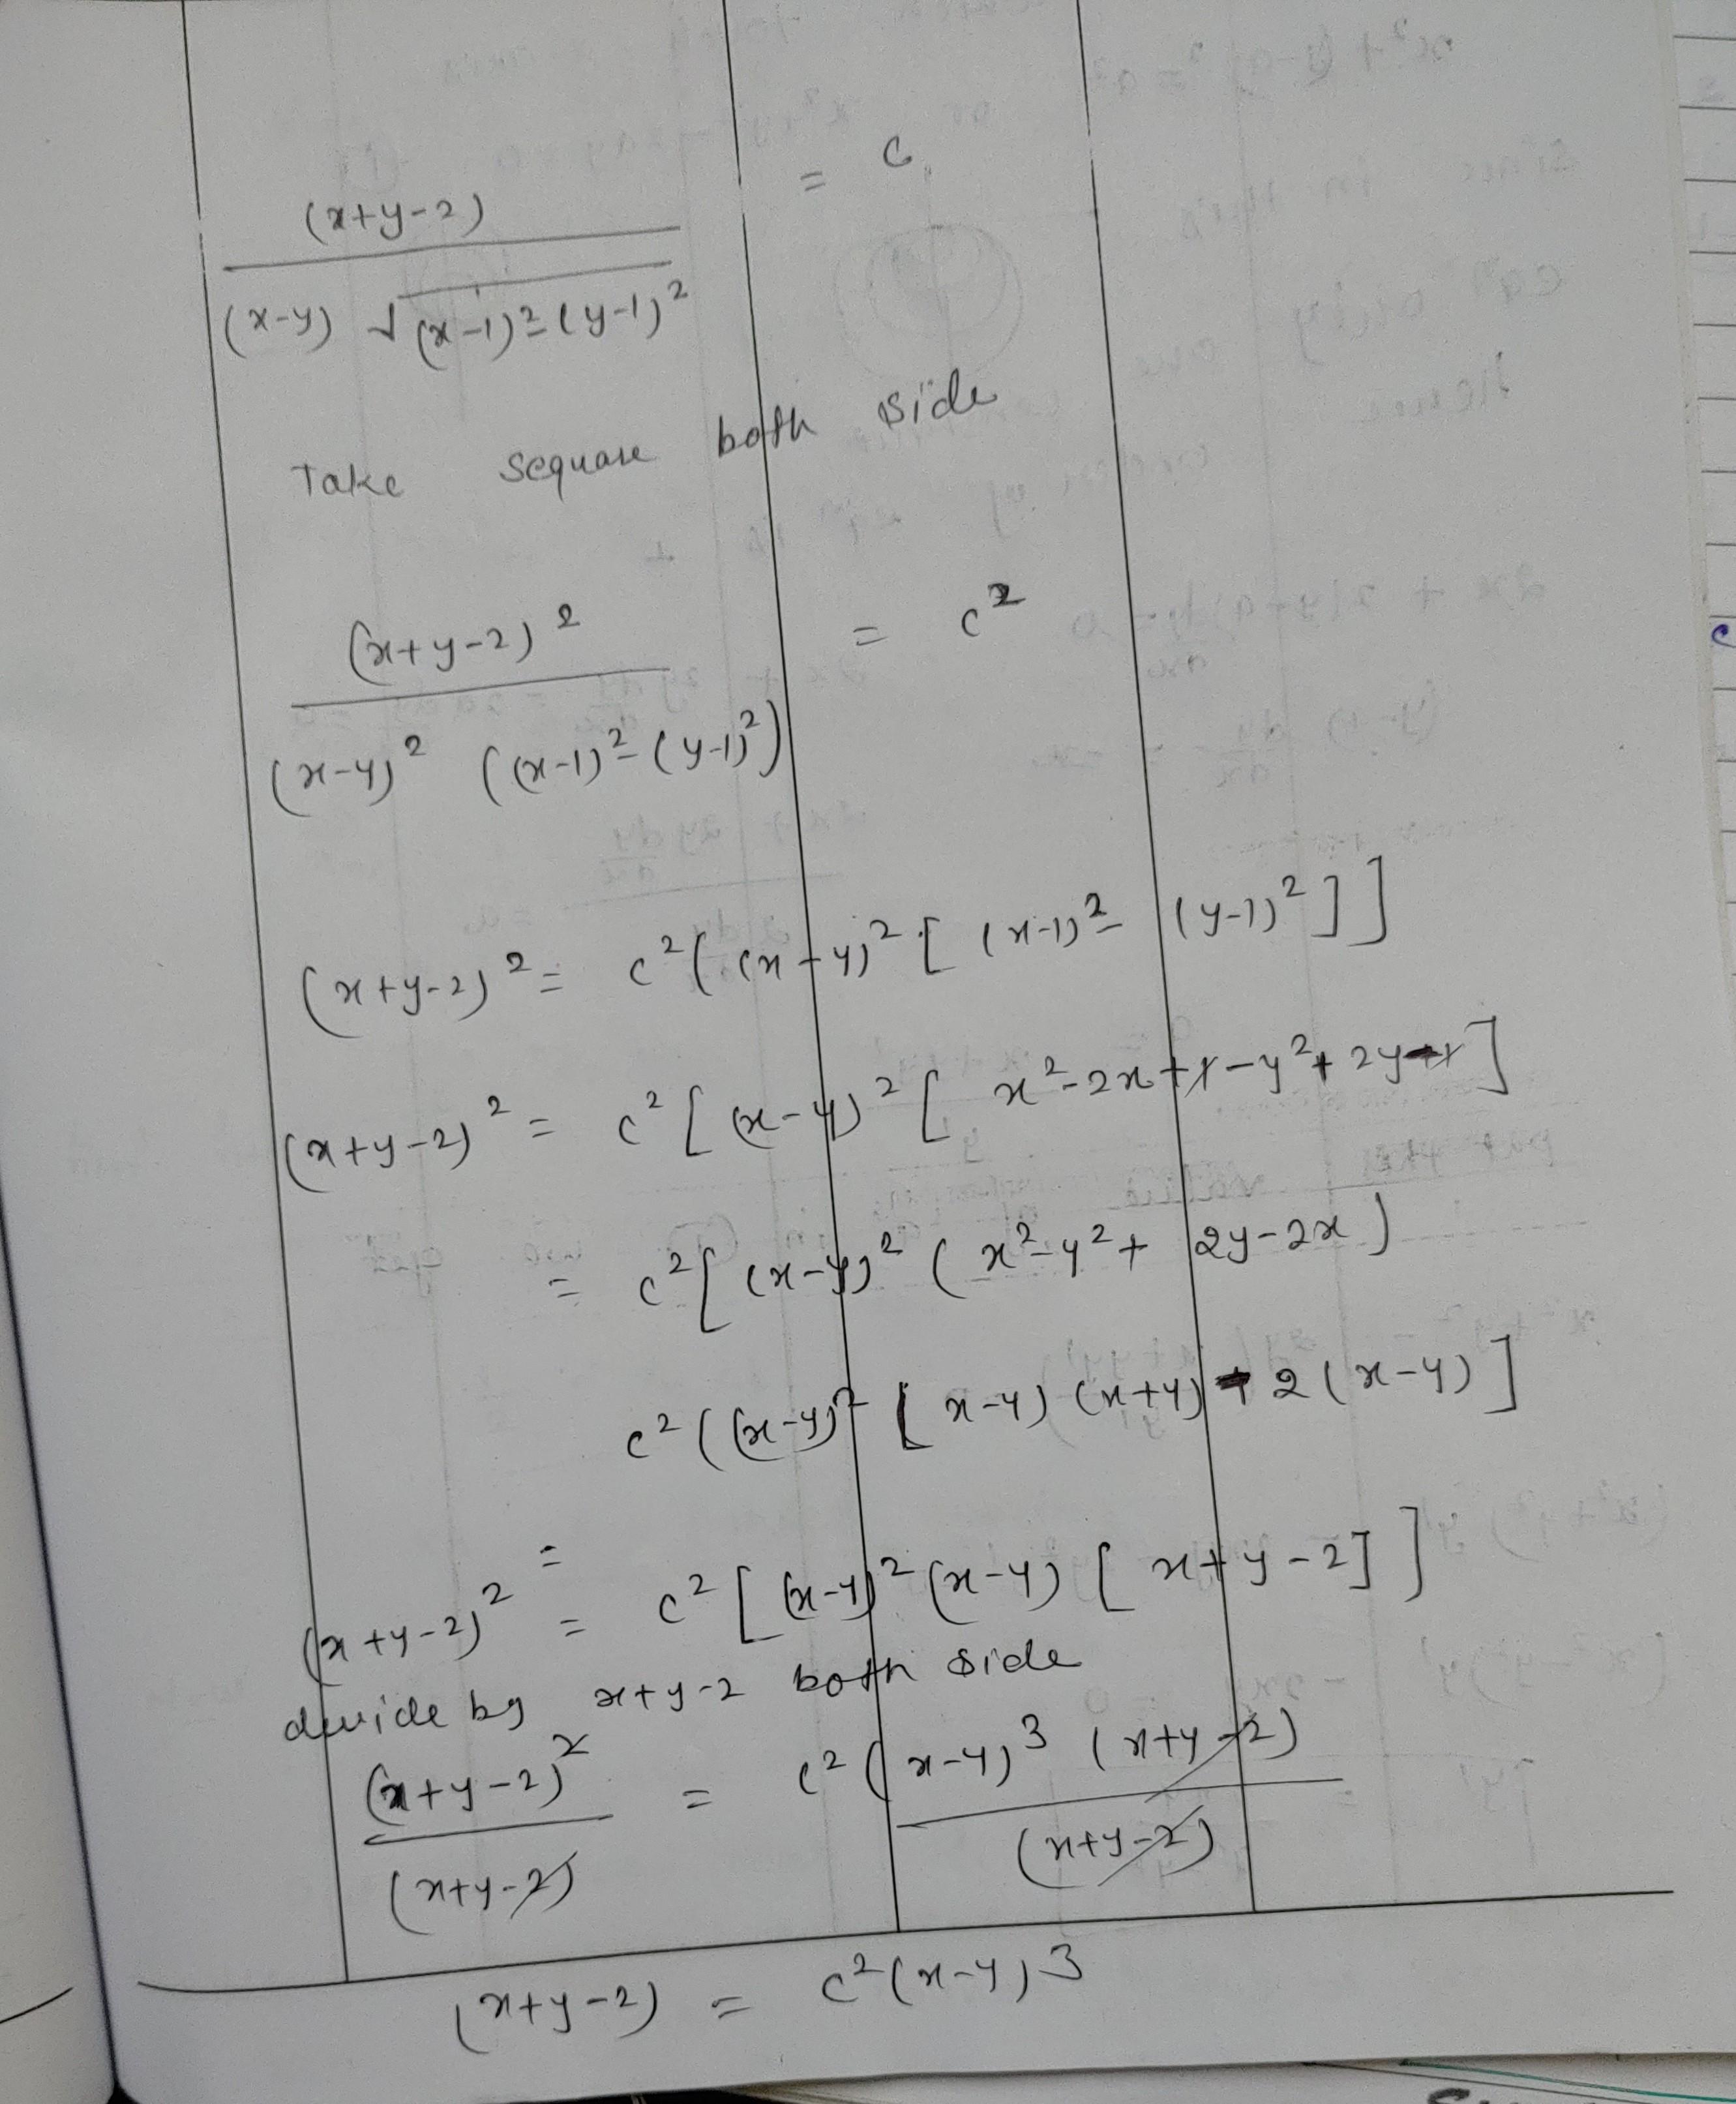 (x+y-2) / (x-y) √(x-1)²-(y-1)² = c
Take sequare both side
(x+y-2)² / (x-y)² ((x-1)²-(y-1)²) = c²
(x+y-2)² = c²((x-y)² [ (x-1)² - (y-1)² ] ]
(x+y-2)² = c² [ (x-y)² [ x²-2x+1-y²+2y-1 ]
= c² [ (x-y)² ( x²-y²+2y-2x )
c² ( (x-y)² [ x-y) (x+y) - 2 (x-y) ]
=
(x+y-2)² = c² [ (x-y)² (x-y) [ x+y-2 ] ]
divide by x+y-2 both side
(x+y-2)² / (x+y-2) = c² (x-y)³ (x+y-2) / (x+y-2)
(x+y-2) = c² (x-y)³